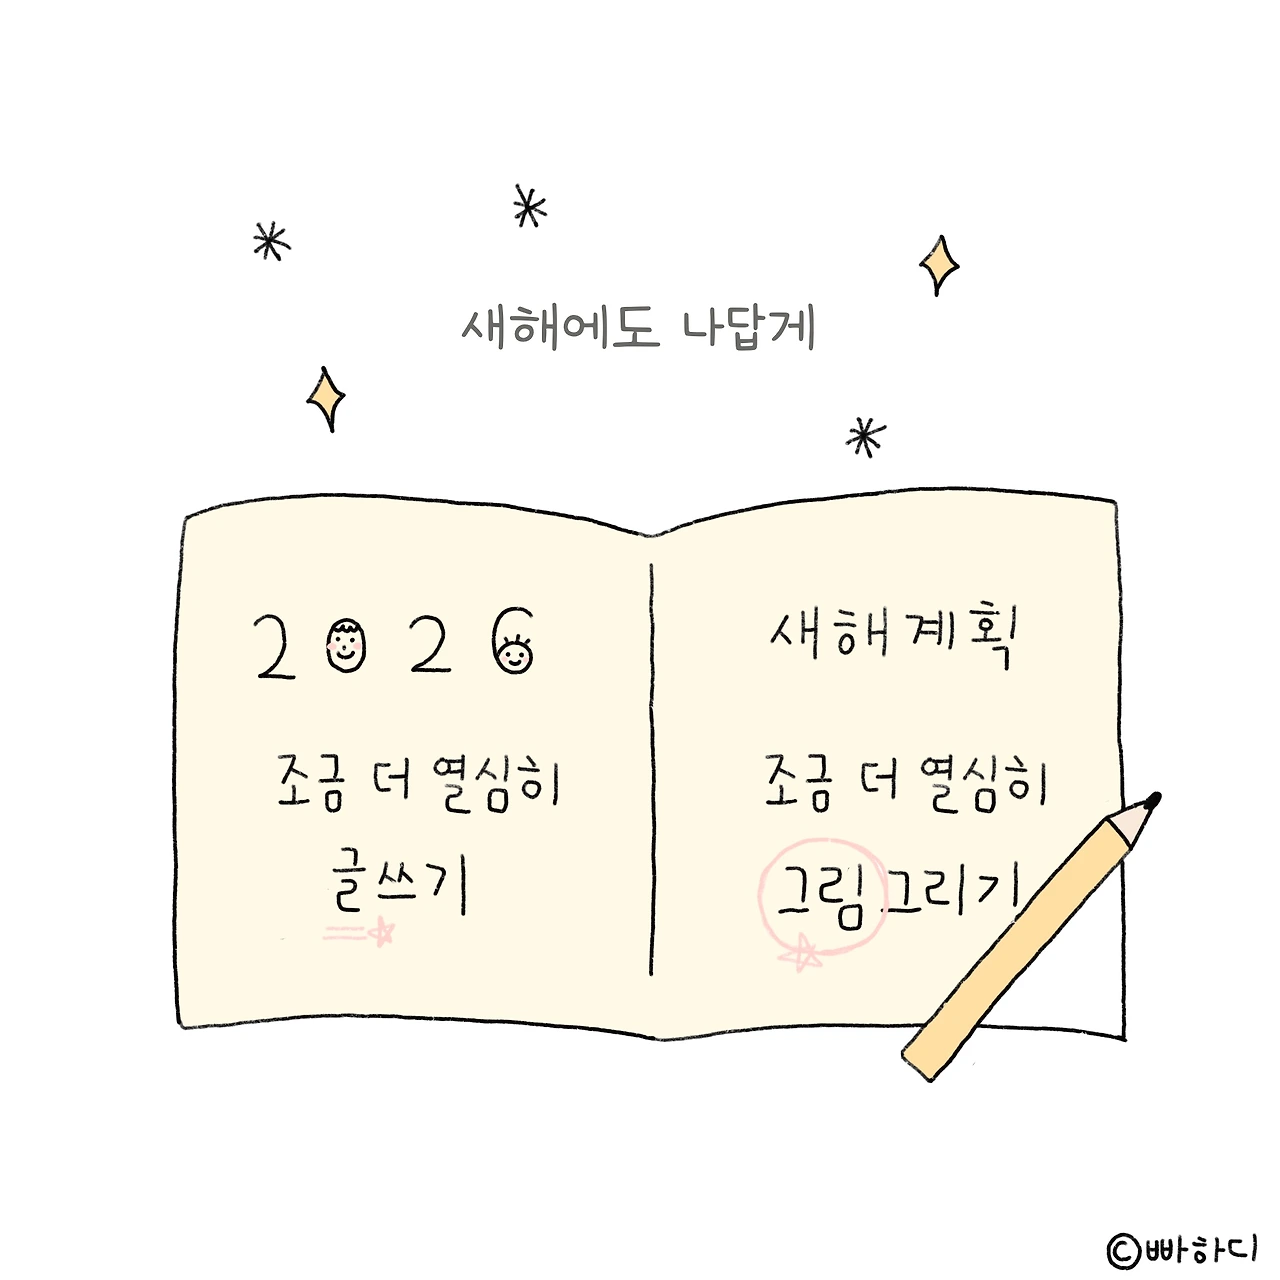 새해에도 나답게
2026
조금 더 열심히
글쓰기
새해계획
조금 더 열심히
그림그리기
©빠하디